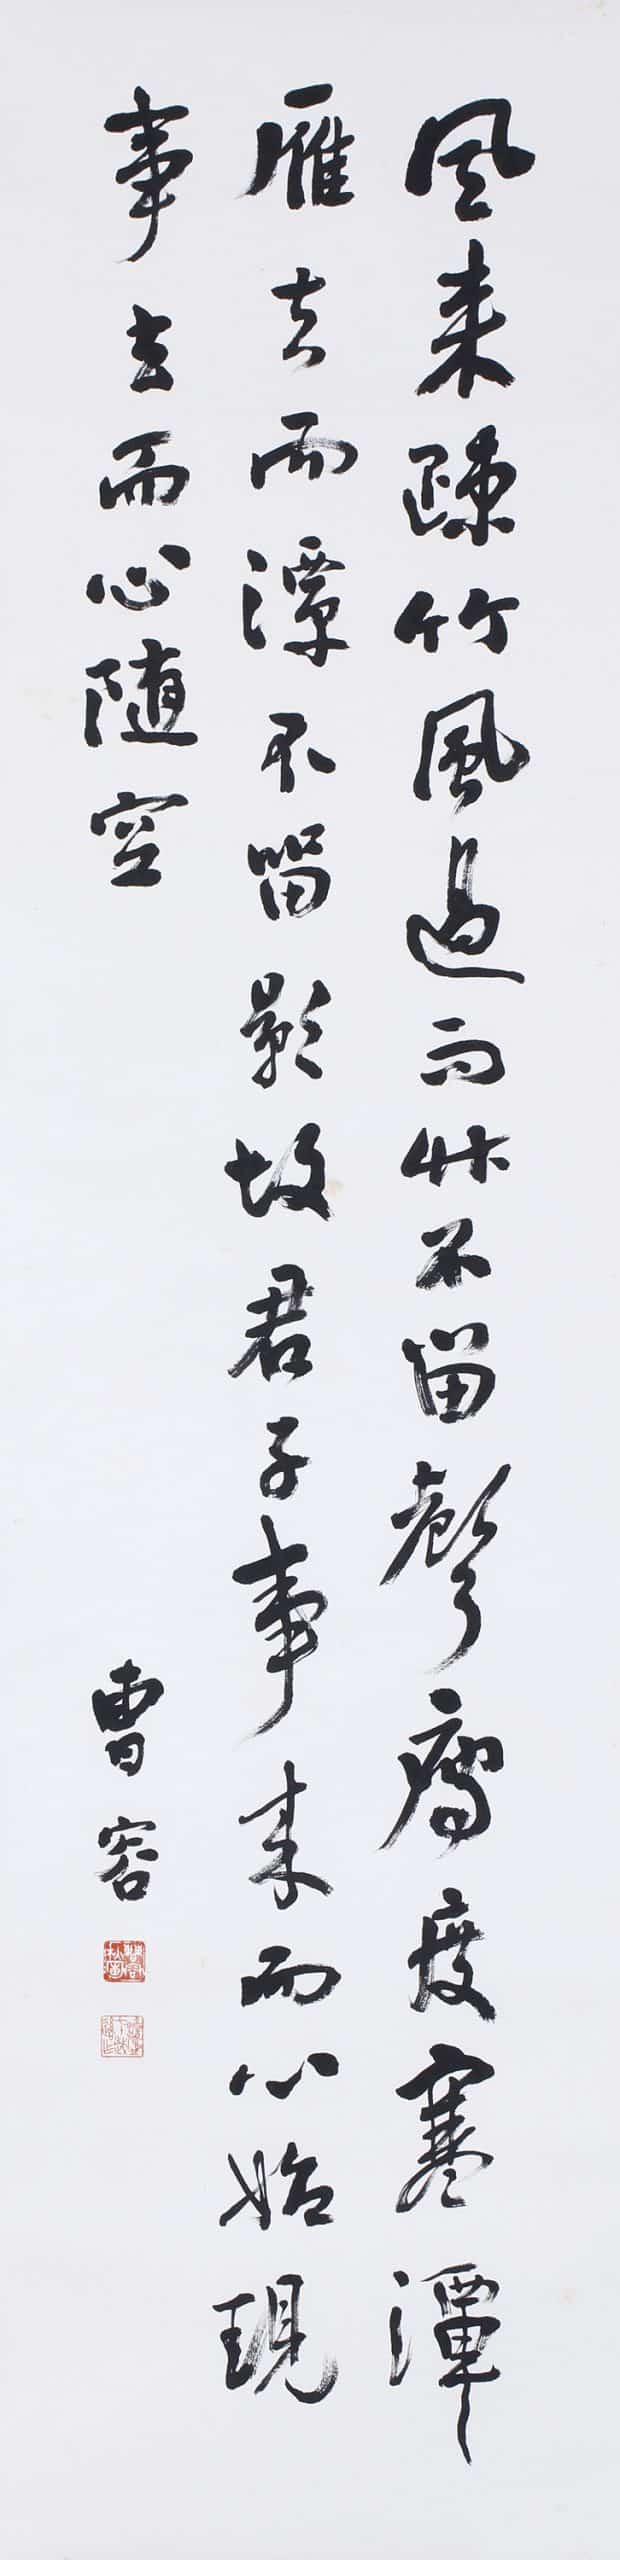 風來疎竹風過而竹不留聲鴈度寒潭
雁去而潭不留影故君子事來而心始現
事去而心隨空
曹容